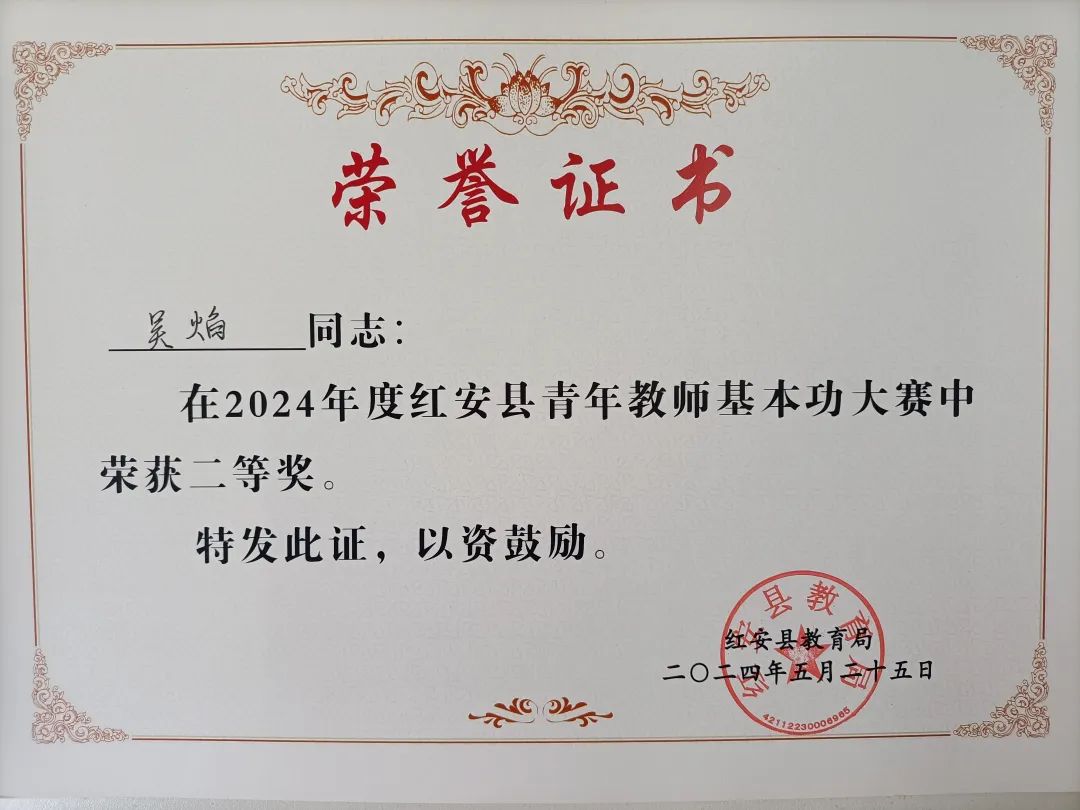 荣誉证书
吴焰 同志：
在2024年度红安县青年教师基本功大赛中
荣获二等奖。
特发此证，以资鼓励。
红安县教育局
红安县教育局
二〇二四年五月二十五日
42112230006985